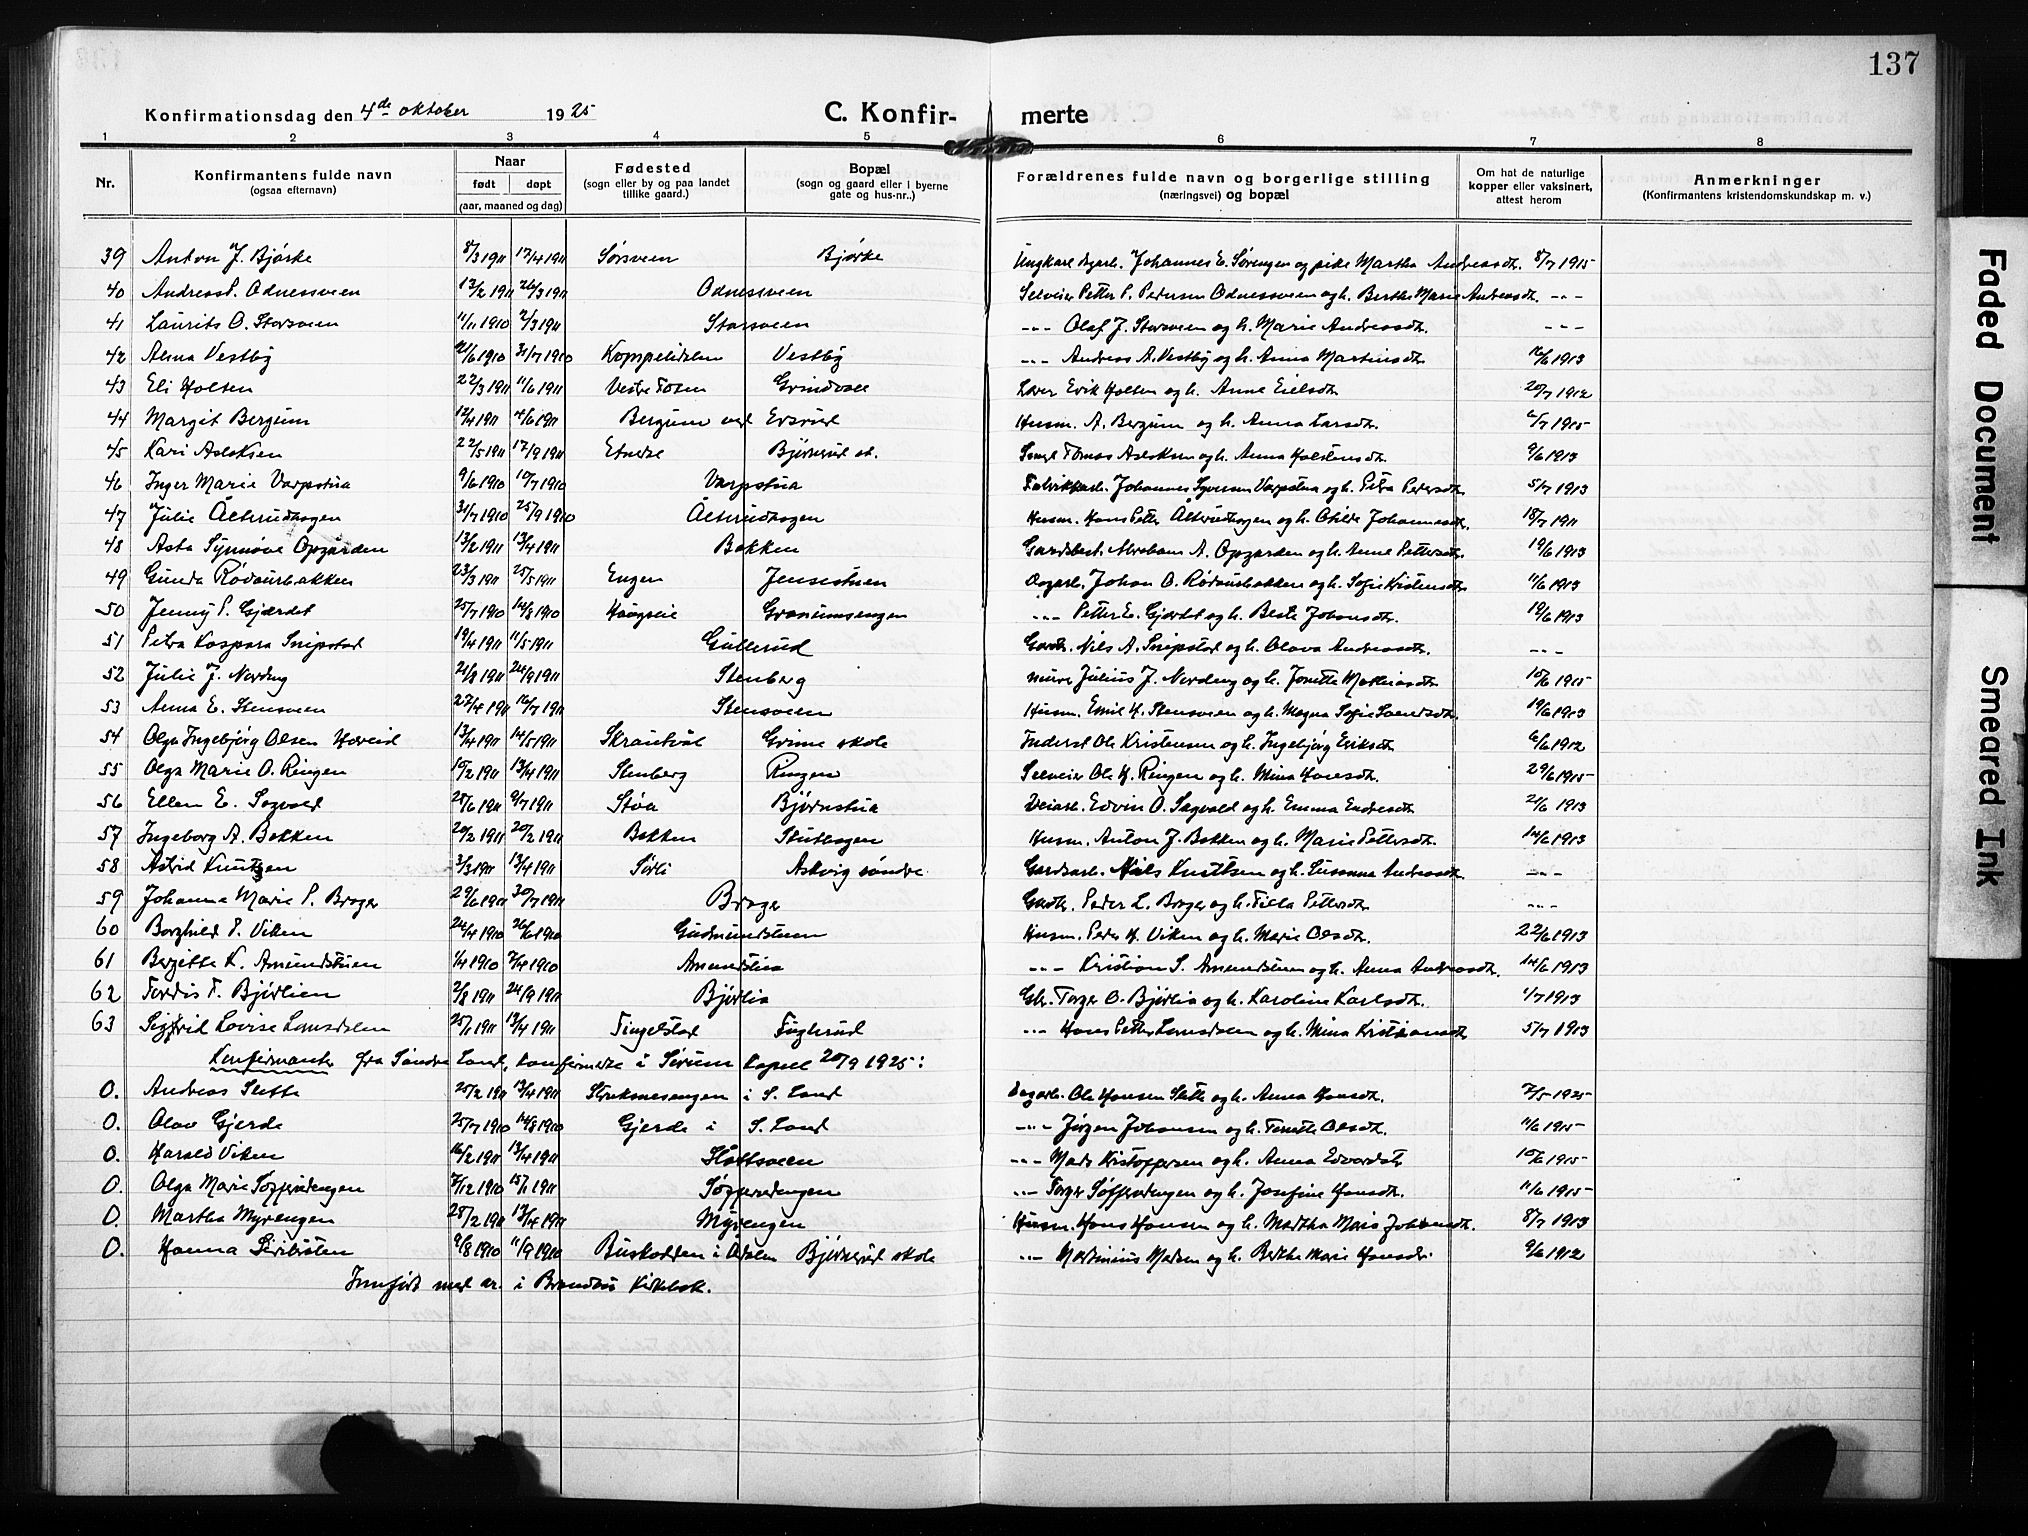 137
Konfirmationsdag den 4de oktober 1925 C. Konfir- merte
1 2 3 4 5 6 7 8
Nr. Konfirmantens fulde navn (ogsaa efternavn) Naar født døpt (aar, maaned og dag) Fødested (sogn eller by og paa landet tillike gaard.) Bopæl (sogn og gaard eller i byerne gate og hus-nr..) Forældrenes fulde navn og borgerlige stilling (næringsvei) og bopæl Om hat de naturlige kopper eller vaksinert, attest herom Anmerkninger (Konfirmantens kristendomskundskap m. v.)
39 Anton J. Bjørke 8/3 1911 17/4 1911 Sørsveen Bjørke Ungkarl Johannes E. Sørengen og pike Martha Andreasdtr. 8/7 1915
40 Andreas P. Odnessveen 12/2 1911 26/3 1911 Odnessveen Selveier Petter P. Pedersen Odnessveen og h. Berthe Marie Andreasdtr. -"-
41 Laurits O. Storsveen 11/11 1910 2/3 1911 Storsveen -"- Olaf J. Storsveen og h. Marie Andreasdtr. -"-
42 Alma Vestby 21/6 1910 31/7 1910 Koppelidalen Vestby -"- Andreas A. Vestby og h. Anna Martinsdtr. 16/6 1913
43 Eli Holten 22/3 1911 11/6 1911 Vestre Grindvoll Erik Holten og h. Anne Eielsdtr. 20/7 1912
44 Margit Bergum 12/4 1911 4/6 1911 Bergum ved Evsrud Husm. A. Bergum og h. Anna Larsdtr. 6/7 1915
45 Kari Aslaksen 22/5 1911 17/9 1911 Etnedal Bjørnerud st. Tomas Aslaksen og h. Anna Halstensdtr. 9/6 1913
46 Inger Marie Varpstua 9/6 1910 10/7 1910 Varpstua Fabrikkarb. Johannes Syversen Varpstua og h. Petra Pedersdtr. 5/7 1913
47 Julie Ålterudhagen 31/7 1910 25/9 1910 Ålterudhagen Husm. Hans Petter Ålterudhagen og h. Otilde Johannesdtr. 18/7 1911
48 Asta Synnøve Opgården 13/2 1911 13/4 1911 Bakken Gardsbest. Abraham A. Opgarden og h. Anne Pettersdtr. 19/6 1913
49 Gunda Rødøursbakken 23/3 1911 25/5 1911 Engen Jensestuen Dagarb. Johan O. Rødøursbakken og h. Sofie Kristensdtr. 11/6 1913
50 Jenny P. Gjærdet 25/7 1910 14/8 1910 Haagseie Granumsengen -"- Petter E. Gjærdet og h. Beate Johansdtr. 19/6 1913
51 Petra Kaspara Snipstad 19/4 1911 11/5 1911 Gullerud Gardbr. Nils A. Snipstad og h. Olava Andreasdtr. -"-
52 Julie J. Nerdrug 21/8 1911 24/9 1911 Stenberg Julius J. Nerdrug og h. Jonette Mathiasdtr. 10/6 1915
53 Anna E. Stensveen 27/4 1911 16/7 1911 Stensveen Husm. Emil H. Stensveen og h. Magna Sofie Svendsdtr. 19/6 1913
54 Olga Ingebjørg Olsen Høveid 13/4 1911 14/5 1911 Skrautvål Grime skole Inderst Ole Kristensen og h. Ingebjørg Eriksdtr. 6/6 1912
55 Olga Marie O. Ringen 10/2 1911 13/4 1911 Stenberg Ringen Selveier Ole H. Ringen og h. Mina Hansdtr. 29/6 1915
56 Ellen E. Sagvold 25/6 1911 9/7 1911 Støa Bjørnstua Veiarb. Edvin O. Sagvold og h. Emma Endresdtr. 21/6 1913
57 Ingeborg A. Bakken 20/2 1911 20/2 1911 Bakken Stuthagen Husm. Anton J. Bakken og h. Marie Pettersdtr. 14/6 1913
58 Astrid Knutzen 3/3 1911 13/4 1911 Sørli Askvig søndre Gardkarl. Nils Knutsen og h. Susanna Andreasdtr. -"-
59 Johanna Marie P. Brager 29/6 1911 30/7 1911 Brager Gardbr. Peder L. Brager og h. Tilla Pettersdtr. -"-
60 Borghild P. Viken 24/4 1910 26/6 1910 Gudmundstuen Husm. Peder H. Viken og h. Marie Olesdtr. 22/6 1913
61 Bergitte K. Amundstuen 1/4 1910 7/4 1910 Amundstua -"- Kristian S. Amundstuen og h. Anna Andreasdtr. 14/6 1913
62 Tordis T. Bjørlien 2/8 1911 24/9 1911 Bjørlia Gbr. Torger O. Bjørlia og h. Karoline Karlsdtr. 1/7 1913
63 Sigfrid Lovise Lomsdalen 25/1 1911 13/4 1911 Tingelstad Fuglerud -"- Hans Petter Lomsdalen og h. Mina Kristiansdtr. 5/7 1913
Konfirmanter fra Søndre Land, konfirmerte i Sørum Kapell 20/9 1925:
O. Andreas Slette 25/2 1911 13/4 1911 i S. Land Dagarb. Ole Hansen Slette og h. Anna Hansdtr. 7/5 1925
O. Olav Gjerde 25/7 1910 14/8 1910 Gjerde i S. Land -"- Jørgen Johansen og h. Tomette Olesdtr. 11/6 1915
O. Harald Viken 16/2 1911 13/4 1911 Slattsveen -"- Mads Kristoffersen og h. Anna Edvardsdtr. 10/6 1915
O. Olga Marie Søfferudengen 7/12 1910 15/1 1911 Søfferudengen -"- Torger Søfferudengen og h. Josefine Hansdtr. 11/6 1915
O. Martha Myrengen 28/2 1911 13/4 1911 Myrengen Husm. Hans Hansen og h. Martha Marie Johansdtr. 8/7 1913
O. Hanna 9/8 1910 11/9 1910 Buskodden i Ådalen Bjørnerud skole -"- Martinius Madsen og h. Berthe Marie Hansdtr. 9/6 1912
Innført med nr. i Brandbu Kirkebok.
Faded Document
Smeared Ink